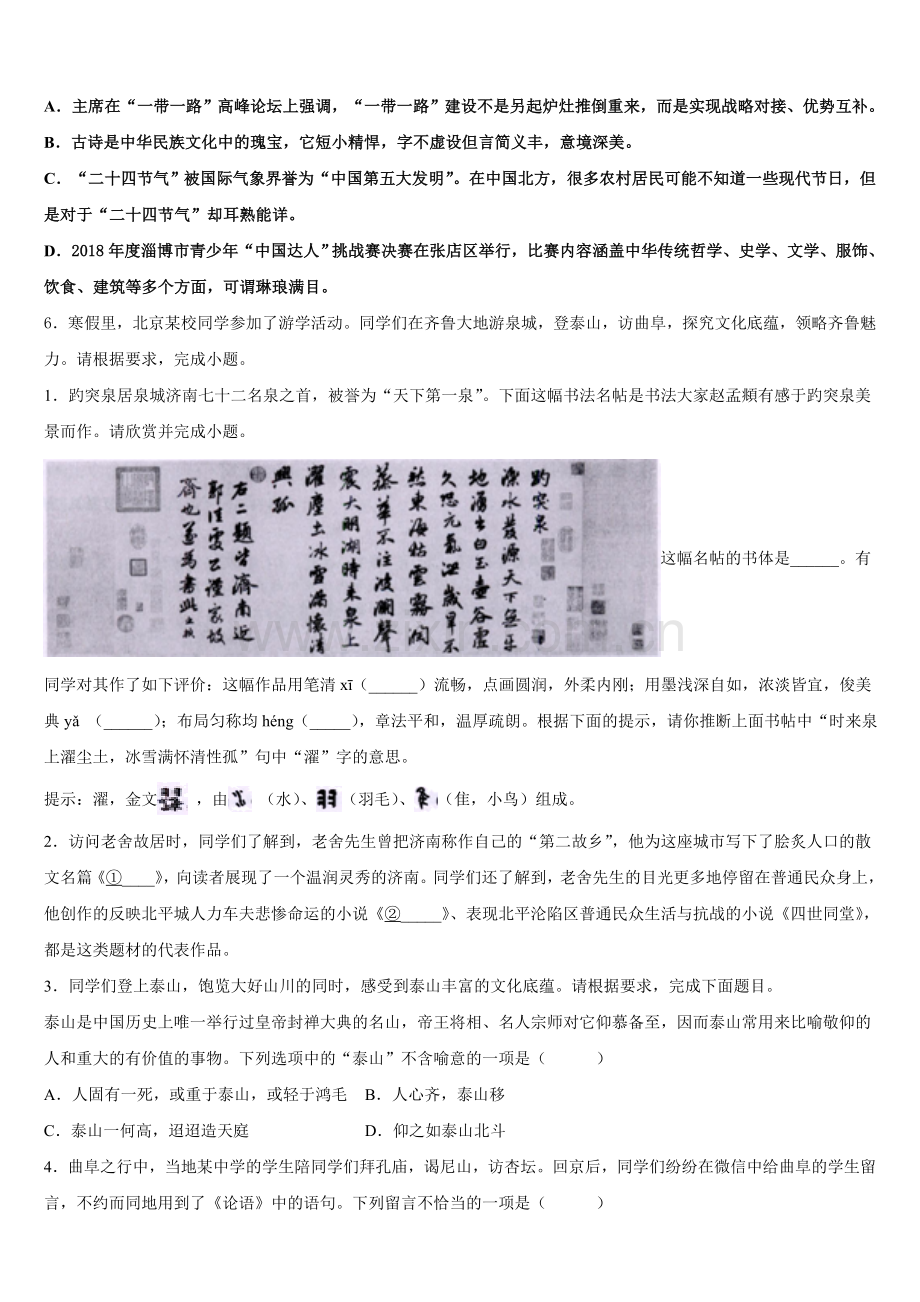 A．主席在“一带一路”高峰论坛上强调，“一带一路”建设不是另起炉灶推倒重来，而是实现战略对接、优势互补。
B．古诗是中华民族文化中的瑰宝，它短小精悍，字不虚设但言简义丰，意境深美。
C．“二十四节气”被国际气象界誉为“中国第五大发明”。在中国北方，很多农村居民可能不知道一些现代节日，但
是对于“二十四节气”却耳熟能详。
D．2018 年度淄博市青少年“中国达人”挑战赛决赛在张店区举行，比赛内容涵盖中华传统哲学、史学、文学、服饰、
饮食、建筑等多个方面，可谓琳琅满目。
6．寒假里，北京某校同学参加了游学活动。同学们在齐鲁大地游泉城，登泰山，访曲阜，探究文化底蕴，领略齐鲁魅
力。请根据要求，完成小题。
1．趵突泉居泉城济南七十二名泉之首，被誉为“天下第一泉”。下面这幅书法名帖是书法大家赵孟頫有感于趵突泉美
景而作。请欣赏并完成小题。
趵突泉
濼水發源天下無平
地湧出白玉壺谷虛
久恐元氣洩歲旱不
愁東海枯雲霧潤
蒸華不注波瀾聲
震大明湖時來泉上
濯塵土冰雪滿懷清
興孤
右二題皆濟南近
郭佳處公謹家故
齊也遂為書此
这幅名帖的书体是______。有
同学对其作了如下评价：这幅作品用笔清 xī（______）流畅，点画圆润，外柔内刚；用墨浅深自如，浓淡皆宜，俊美
典 yǎ （______）；布局匀称均 héng（_____），章法平和，温厚疏朗。根据下面的提示，请你推断上面书帖中“时来泉
上濯尘土，冰雪满怀清性孤”句中“濯”字的意思。
提示：濯，金文 ，由 （水）、 （羽毛）、 （隹，小鸟）组成。
2．访问老舍故居时，同学们了解到，老舍先生曾把济南称作自己的“第二故乡”，他为这座城市写下了脍炙人口的散
文名篇《①____》，向读者展现了一个温润灵秀的济南。同学们还了解到，老舍先生的目光更多地停留在普通民众身上，
他创作的反映北平城人力车夫悲惨命运的小说《②_____》、表现北平沦陷区普通民众生活与抗战的小说《四世同堂》，
都是这类题材的代表作品。
3．同学们登上泰山，饱览大好山川的同时，感受到泰山丰富的文化底蕴。请根据要求，完成下面题目。
泰山是中国历史上唯一举行过皇帝封禅大典的名山，帝王将相、名人宗师对它仰慕备至，因而泰山常用来比喻敬仰的
人和重大的有价值的事物。下列选项中的“泰山”不含喻意的一项是（ ）
A．人固有一死，或重于泰山，或轻于鸿毛 B．人心齐，泰山移
C．泰山一何高，迢迢造天庭 D．仰之如泰山北斗
4．曲阜之行中，当地某中学的学生陪同学们拜孔庙，谒尼山，访杏坛。回京后，同学们纷纷在微信中给曲阜的学生留
言，不约而同地用到了《论语》中的语句。下列留言不恰当的一项是（ ）